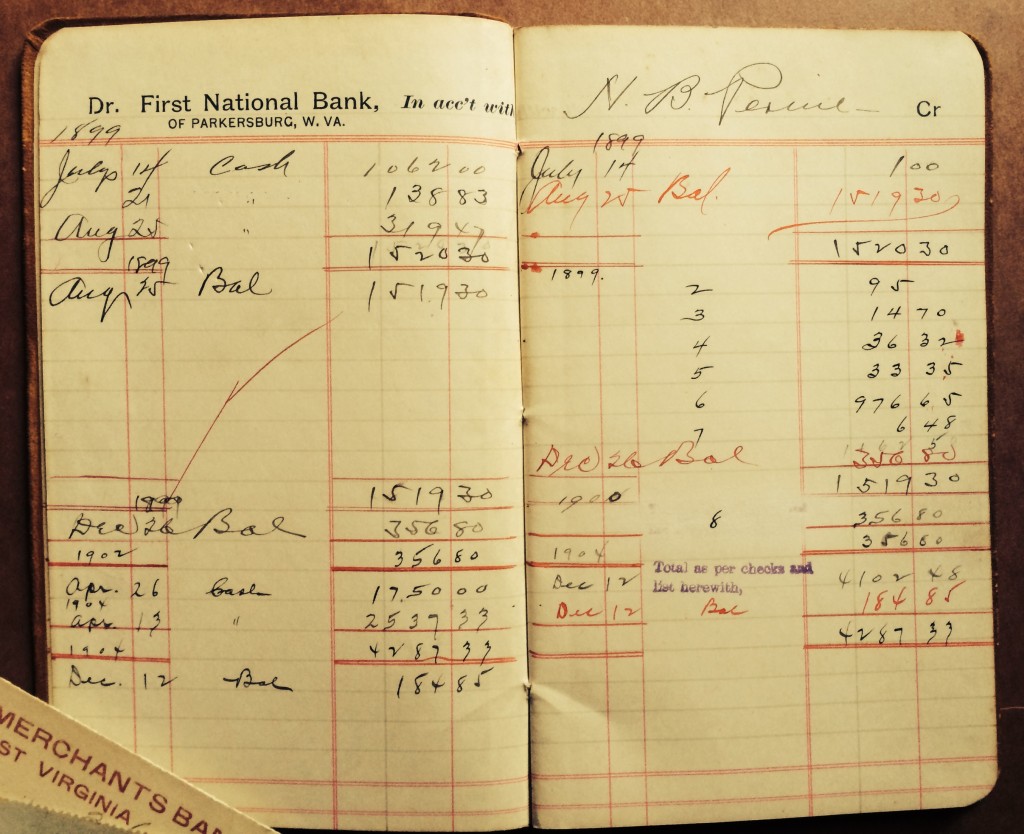 Dr. First National Bank, In acc't with
OF PARKERSBURG, W. VA.
1899
July 14 Cash 1062 00
21 " 138 83
Aug 25 " 319 47
1520 30
1899
Aug 25 Bal 1519 30
1519 30
1899
Dec 26 Bal 356 80
1902 356 80
Apr. 26 Cash 1750 00
1904
Apr. 13 " 2537 33
1904 4287 33
Dec. 12 Bal 184 85
MERCHANTS BAN
ST VIRGINIA
N. B. Cr
1899
July 14 1 00
Aug 25 Bal. 1519 30
1520 30
1899.
2 95
3 14 70
4 36 32
5 33 35
6 976 65
7 6 48
Dec 26 Bal 356 80
1519 30
1900
8 356 80
356 80
1904
Dec 12 Total as per checks and 4102 48
list herewith,
Dec 12 Bal 184 85
4287 33